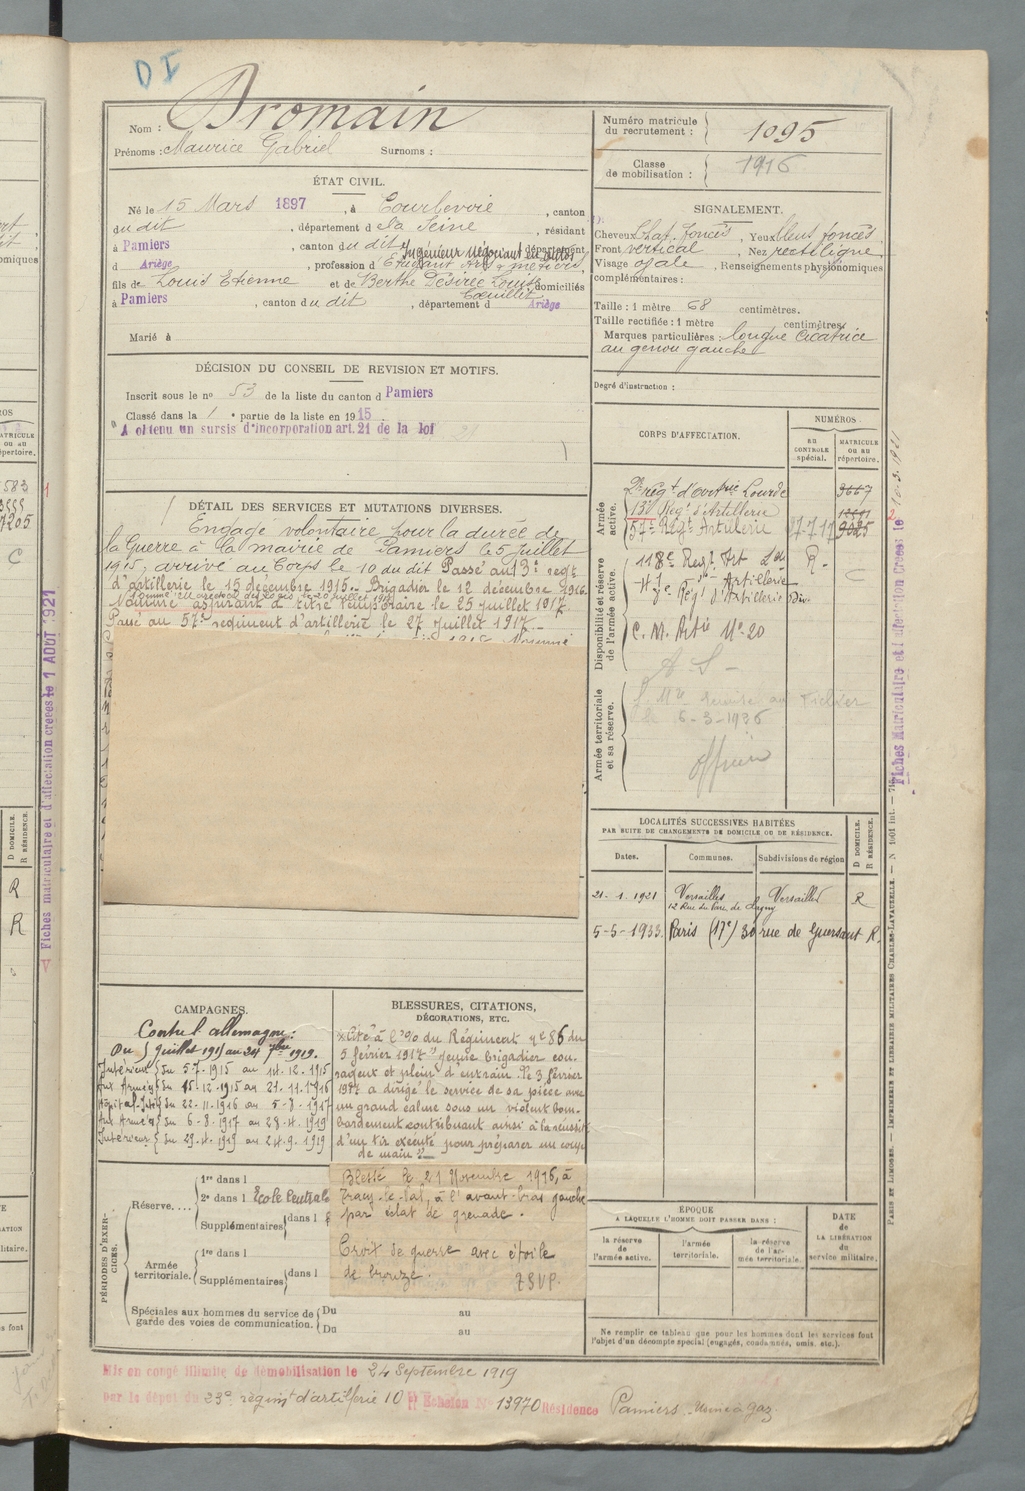 DI
Nom : Dromain
Prénoms : Maurice Gabriel Surnoms :
Numéro matricule du recrutement : 1095
Classe de mobilisation : 1916
ÉTAT CIVIL.
Né le 15 Mars 1897, à Courbevoie, canton
du dit, département d la Seine, résidant
à Pamiers, canton du dit, département
Ingénieur Négociant en autos
d Ariège, profession d Etudiant Arts & métiers
fils de Louis Etienne et de Berthe Désirée Louise domiciliés
à Pamiers, canton du dit, département d Ariège
Marié à
SIGNALEMENT.
Cheveux Chat. foncés, Yeux bleus foncés
Front vertical, Nez rectiligne
Visage ovale, Renseignements physionomiques
complémentaires :
Taille : 1 mètre 68 centimètres.
Taille rectifiée : 1 mètre centimètres.
Marques particulières : longue cicatrice
au genou gauche
Degré d'instruction :
DÉCISION DU CONSEIL DE REVISION ET MOTIFS.
Inscrit sous le no 53 de la liste du canton d Pamiers
Classé dans la 1e partie de la liste en 1915
A obtenu un sursis d'incorporation art. 21 de la loi
DÉTAIL DES SERVICES ET MUTATIONS DIVERSES.
Engagé volontaire pour la durée de
la Guerre à la mairie de Pamiers le 5 juillet
1915, arrivé au Corps le 10 du dit Passé au 13e régt
d'artillerie le 15 décembre 1915. Brigadier le 12 décembre 1916.
Nommé aspirant à titre temporaire le 25 juillet 1917.
Passé au 57e régiment d'artillerie le 27 juillet 1917.
CORPS D'AFFECTATION.
NUMÉROS
au contrôle spécial.
matricule ou au répertoire.
Armée active.
2e régt d'artrie Lourde 3667
13e Régt d'Artillerie
57e Régt Artillerie 27-7-17 9025
Disponibilité et réserve de l'armée active.
118e Regt Art Lde R.
C. M. Artie No 20
A S
Armée territoriale et sa réserve.
6-3-1936
officier
LOCALITÉS SUCCESSIVES HABITÉES
PAR SUITE DE CHANGEMENTS DE DOMICILE OU DE RÉSIDENCE.
Dates. Communes. Subdivisions de région
D DOMICILE. R RÉSIDENCE.
21-1-1921 Versailles Versailles R
5-5-1933. Paris (17e) 30 rue de Guersant R.
CAMPAGNES.
Contre l'allemagne :
Du 5 juillet 1915 au 24 7bre 1919.
Intérieur du 5-7-1915 au 14-12-1915
Aux Armées du 15-12-1915 au 21-11-1916
Hôpital-Intér du 22-11-1916 au 5-8-1917
Aux Armées du 6-8-1917 au 28-4-1919
Intérieur du 29-4-1919 au 24-9-1919
BLESSURES, CITATIONS,
DÉCORATIONS, ETC.
Cité à l'o/o du Régiment No 86 du
5 février 1917 "jeune brigadier cou-
rageux et plein d'entrain. le 3 février
1917 a dirigé le service de sa pièce avec
un grand calme sous un violent bom-
bardement contribuant ainsi à la réussite
d'un tir exécuté pour préparer un coup
de main"
Blessé le 21 Novembre 1916, à
Tracy-le-Val, à l'avant-bras gauche
par éclat de grenade.
Croix de guerre avec étoile
de bronze. TSVP.
PÉRIODES D'EXERCICES.
Réserve....
1re dans l
2e dans l Ecole Centrale
Supplémentaires dans l
Armée territoriale.
1re dans l
Supplémentaires dans l
Spéciales aux hommes du service de garde des voies de communication.
Du au
Du au
ÉPOQUE
A LAQUELLE L'HOMME DOIT PASSER DANS :
la réserve de l'armée active.
l'armée territoriale.
la réserve de l'armée territoriale.
DATE de LA LIBÉRATION du service militaire.
Ne remplir ce tableau que pour les hommes dont les services font
l'objet d'un décompte spécial (engagés, condamnés, omis, etc.).
Mis en congé illimité de démobilisation le 24 Septembre 1919
par le dépôt du 23e régimt d'artillerie 10e Echelon No 13970 Résidence Pamiers Usine à gaz
Fiches matriculaire et d'affectation creées le 1 AOUT 1921
Fiches Matriculaire et d'affectation Creées le 10.3.1921
PARIS ET LIMOGES. — IMPRIMERIE ET LIBRAIRIE MILITAIRES CHARLES-LAVAUZELLE. — N 1001 int.